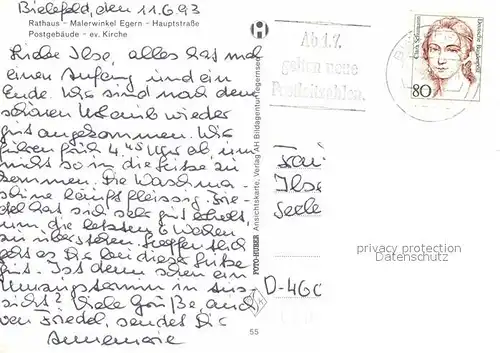 Bielefeld, den 11.6.93
Rathaus - Malerwinkel Egern - Hauptstraße
Postgebäude - ev. Kirche
Liebe Ilse, alles hat mal
einen Anfang und ein
Ende. Wir sind nach dem
schönen Urlaub wieder
gut angekommen. Wir
fuhren früh 4.45 Uhr ab, um
nicht so in die Hitze zu
kommen. Die Waschma-
schine läuft fleissig. Frie-
del hat sich sehr gut erholt,
um die letzten 6 Wochen
zu überstehen. Hoffentlich
geht es Dir bei dieser Hitze
gut. Ist denn schon ein
Umzugstermin in Aus-
sicht? Viele Grüße, auch
von Friedel, sendet Dir
Annemarie
FOTO-HUBER Ansichtskarte, Verlag AH Bildagentur Tegernsee
55
Ab 1.7.
gelten neue
Postleitzahlen.
Clara Schumann
Deutsche Bundespost
80
Frau
Ilse
Seele
D-460
privacy protection
Datenschutz